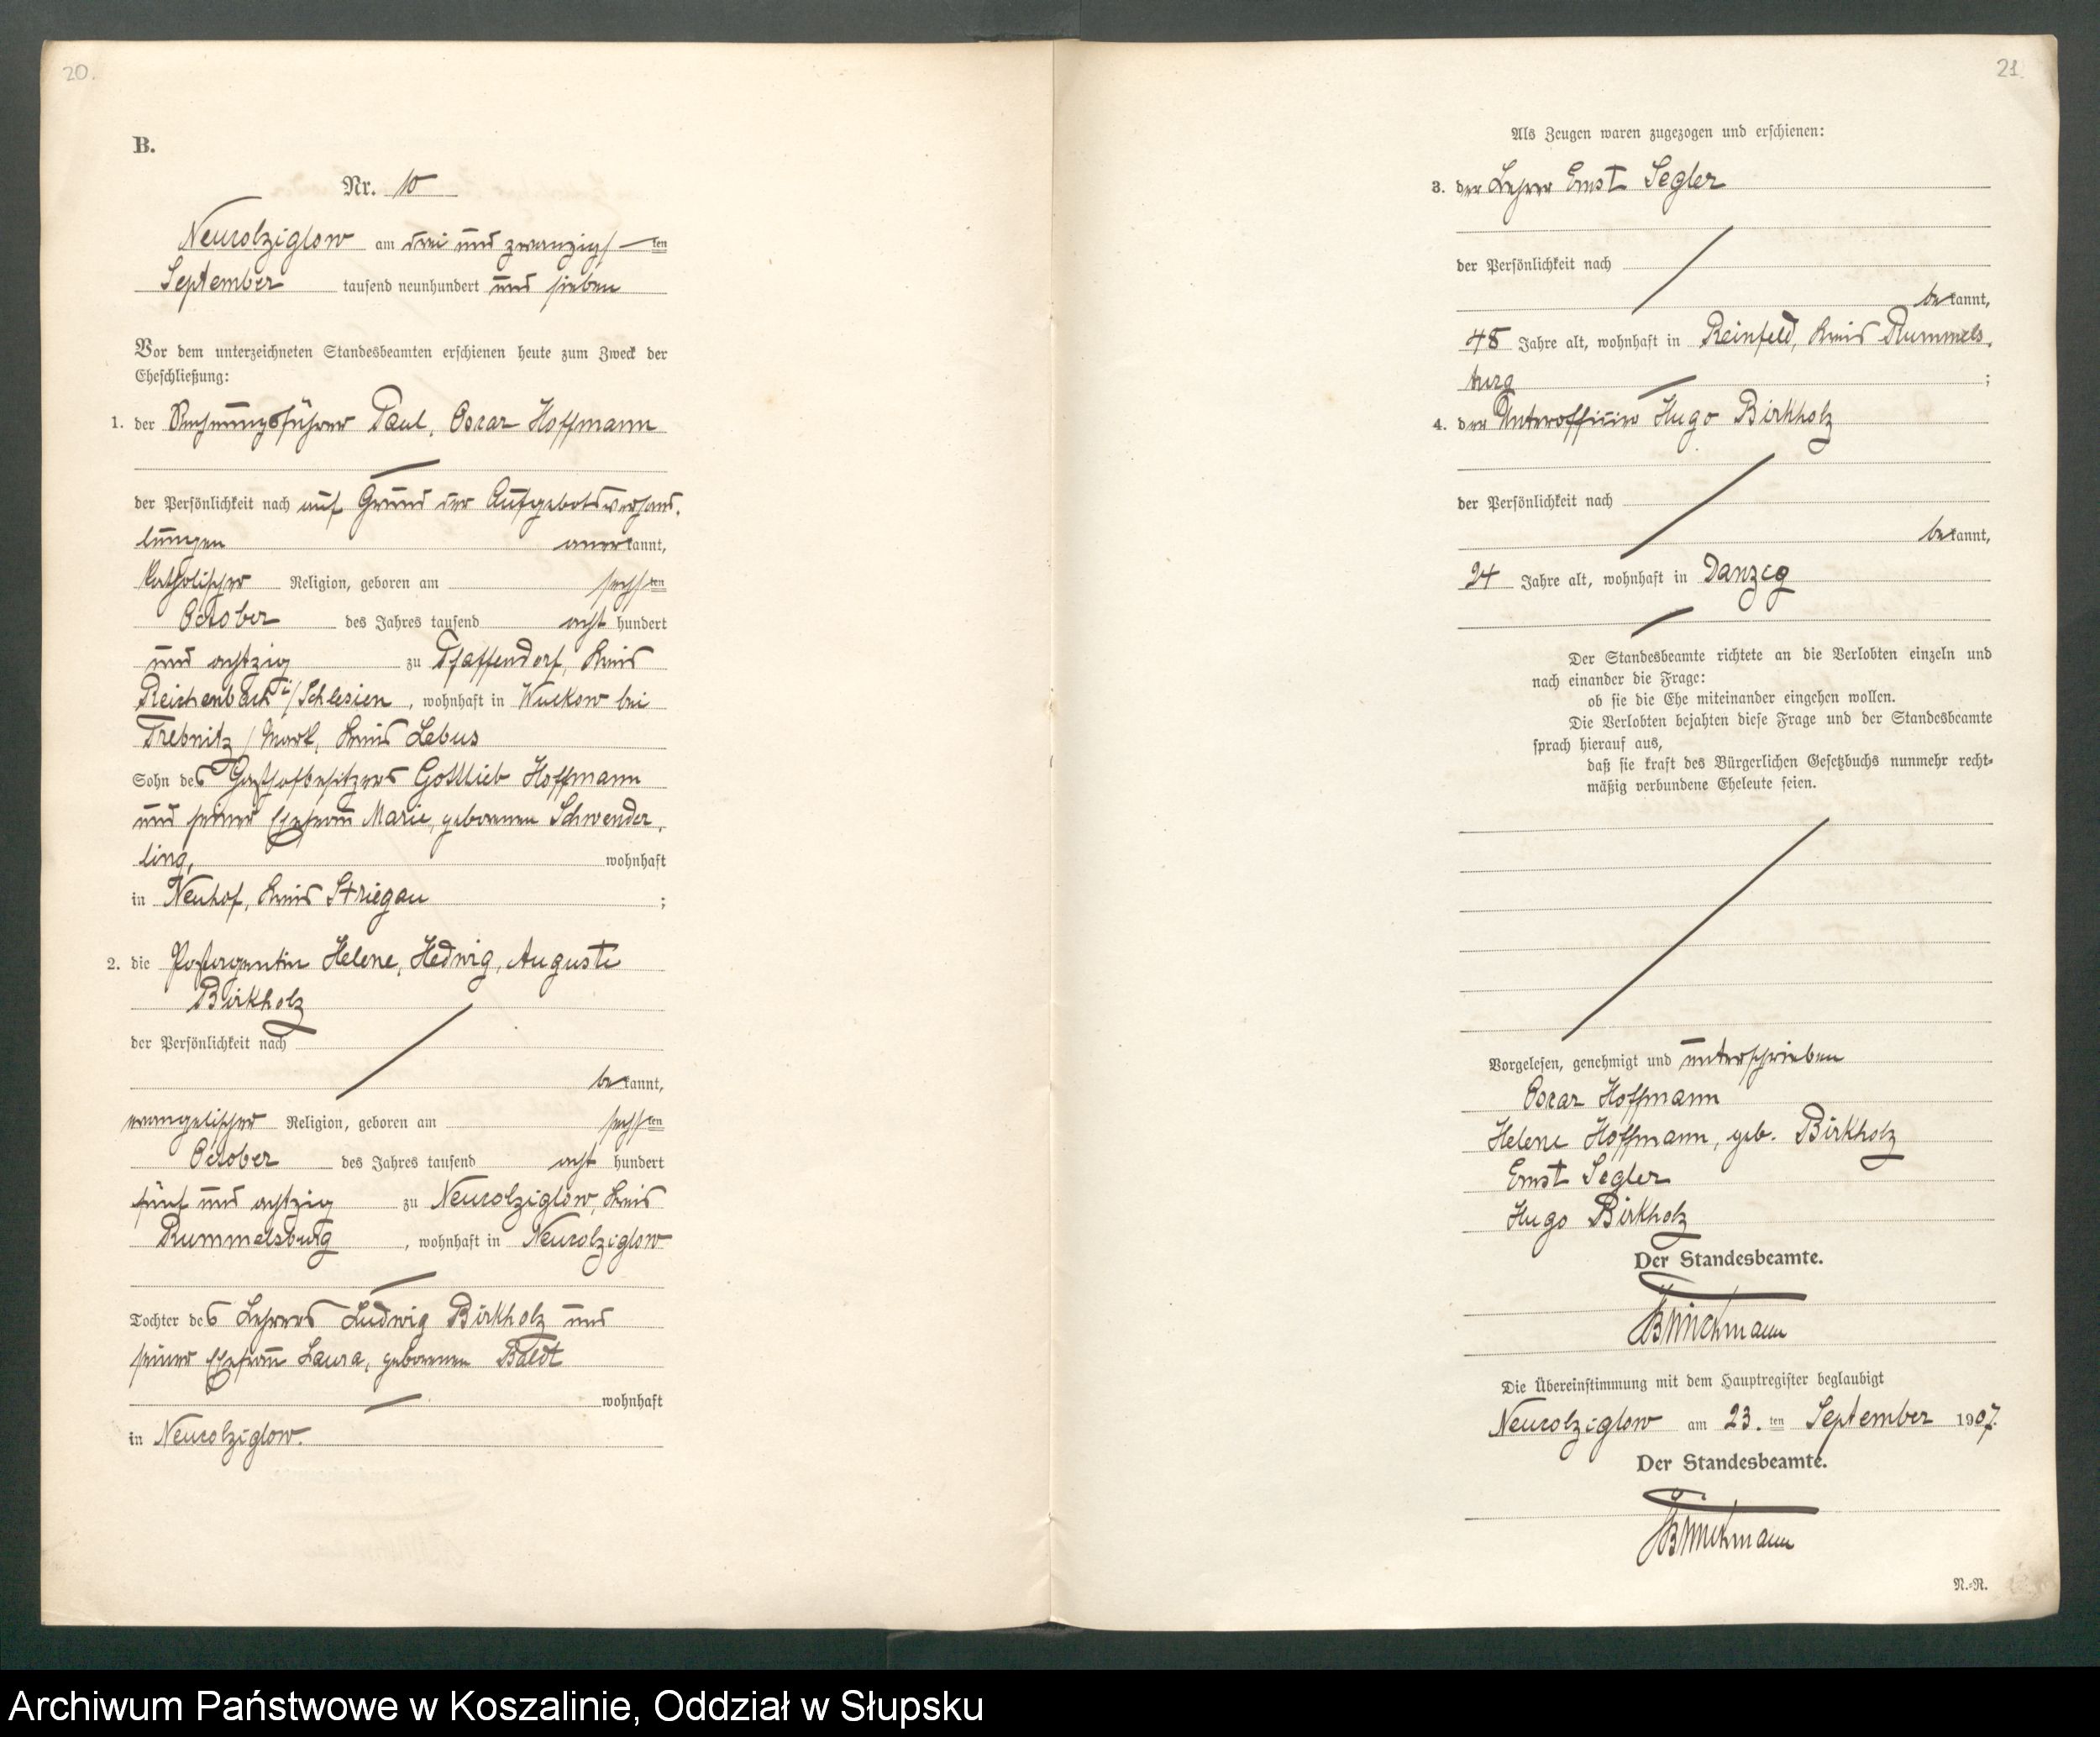 20.
B.
Nr. 10
Neukolziglow am drei und zwanzigsten
September tausend neunhundert und sieben
Vor dem unterzeichneten Standesbeamten erschienen heute zum Zweck der
Eheschließung:
1. der Rechnungsführer Paul, Oscar Hoffmann
der Persönlichkeit nach auf Grund der Aufgebotsverhand-
lungen anerkannt,
katholischer Religion, geboren am sechsten
October des Jahres tausend acht hundert
und achtzig zu Pfaffendorf, Kreis
Reichenbach i/Schlesien, wohnhaft in Wulkow bei
Trebnitz / Mark, Kreis Lebus
Sohn des Gasthofbesitzers Gottlieb Hoffmann
und seiner Ehefrau Marie, geborenen Schwender-
ling, wohnhaft
in Neuhof, Kreis Striegau ;
2. die Postagentin Helene, Hedwig, Auguste
Birkholz
der Persönlichkeit nach
bekannt,
evangelischer Religion, geboren am sechsten
October des Jahres tausend acht hundert
fünf und achtzig zu Neukolziglow, Kreis
Rummelsburg, wohnhaft in Neukolziglow
Tochter des Lehrers Ludwig Birkholz und
seiner Ehefrau Laura, geborenen Boldt
wohnhaft
in Neukolziglow.
21.
Als Zeugen waren zugezogen und erschienen:
3. der Lehrer Ernst Segler
der Persönlichkeit nach
bekannt,
48 Jahre alt, wohnhaft in Reinfeld, Kreis Rummels-
burg ;
4. der Unteroffizier Hugo Birkholz
der Persönlichkeit nach
bekannt,
24 Jahre alt, wohnhaft in Danzig
Der Standesbeamte richtete an die Verlobten einzeln und
nach einander die Frage:
ob sie die Ehe miteinander eingehen wollen.
Die Verlobten bejahten diese Frage und der Standesbeamte
sprach hierauf aus,
daß sie kraft des Bürgerlichen Gesetzbuchs nunmehr recht-
mäßig verbundene Eheleute seien.
Vorgelesen, genehmigt und unterschrieben
Oscar Hoffmann
Helene Hoffmann, geb. Birkholz
Ernst Segler
Hugo Birkholz
Der Standesbeamte.
Die Übereinstimmung mit dem Hauptregister beglaubigt
Neukolziglow am 23. ten September 1907.
Der Standesbeamte.
N.-N.
Archiwum Państwowe w Koszalinie, Oddział w Słupsku